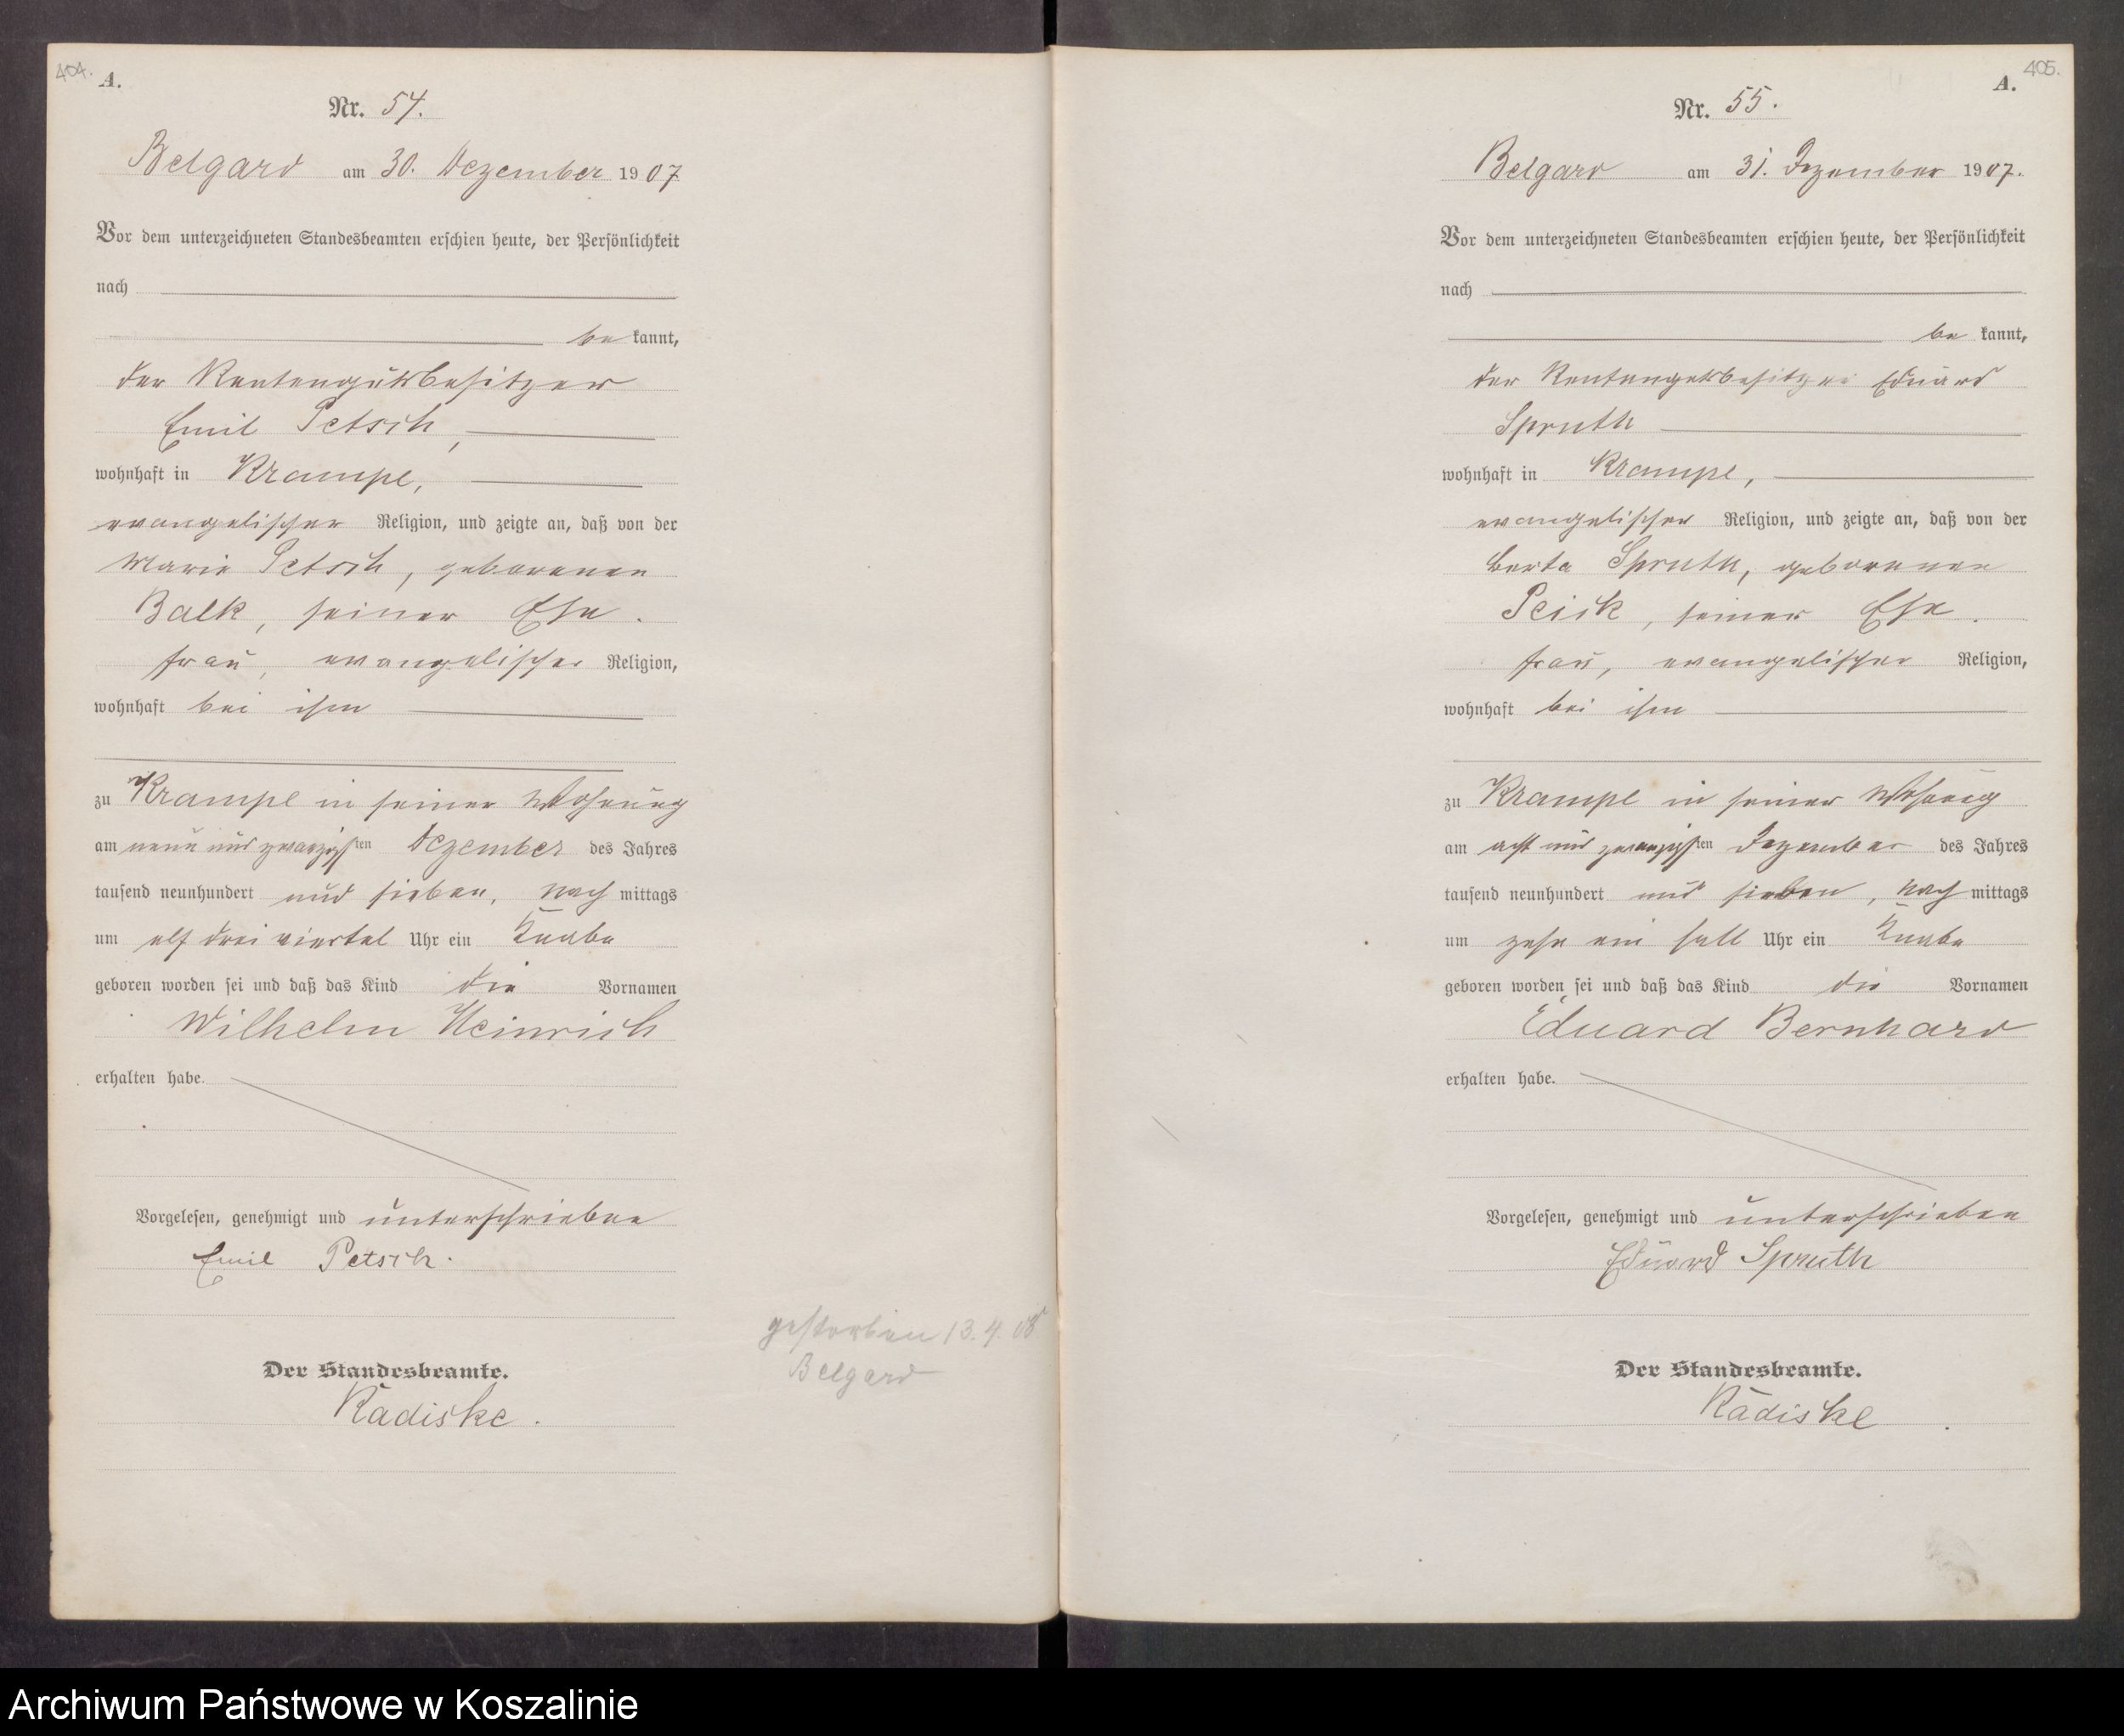 404.
A.
Nr. 54.
Belgard am 30. Dezember 1907
Vor dem unterzeichneten Standesbeamten erschien heute, der Persönlichkeit
nach
be kannt,
der Rentengutsbesitzer
Emil Petsch,
wohnhaft in Krampe,
evangelischer Religion, und zeigte an, daß von der
Marie Petsch, geborenen
Balk, seiner Ehe-
frau, evangelischer Religion,
wohnhaft bei ihm
zu Krampe in seiner Wohnung
am neun und zwanzigsten Dezember des Jahres
tausend neunhundert und sieben, nach mittags
um elf drei viertel Uhr ein Knabe
geboren worden sei und daß das Kind die Vornamen
Wilhelm Heinrich
erhalten habe.
Vorgelesen, genehmigt und unterschrieben
Emil Petsch.
gestorben 13.4.08
Belgard
Der Standesbeamte.
Radiske.
405.
A.
Nr. 55.
Belgard am 31. Dezember 1907.
Vor dem unterzeichneten Standesbeamten erschien heute, der Persönlichkeit
nach
be kannt,
der Rentengutsbesitzer Eduard
Spruth
wohnhaft in Krampe,
evangelischer Religion, und zeigte an, daß von der
Berta Spruth, geborenen
, seiner Ehe-
frau, evangelischer Religion,
wohnhaft bei ihm
zu Krampe in seiner Wohnung
am acht und zwanzigsten Dezember des Jahres
tausend neunhundert und sieben, nach mittags
um zehn ein halb Uhr ein Knabe
geboren worden sei und daß das Kind die Vornamen
Eduard Bernhard
erhalten habe.
Vorgelesen, genehmigt und unterschrieben
Eduard Spruth
Der Standesbeamte.
Radiske
Archiwum Państwowe w Koszalinie